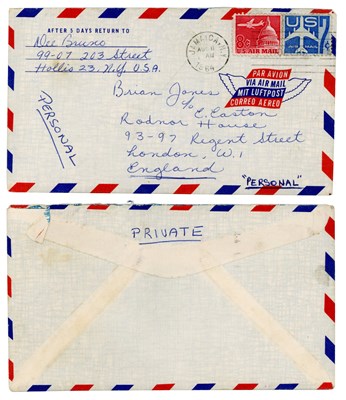 AFTER 5 DAYS RETURN TO
Dee Bruno
99-07 203 Street
Hollis 23. N.Y. U.S.A.
JAMAICA, N.Y.
8¢
U.S. AIR MAIL
US
7¢
PAR AVION
VIA AIR MAIL
MIT LUFTPOST
CORREO AEREO
PERSONAL
Brian Jones
c/o E. Easton
Radnor House
93-97 Regent Street
London, W.1
England
"PERSONAL"
PRIVATE